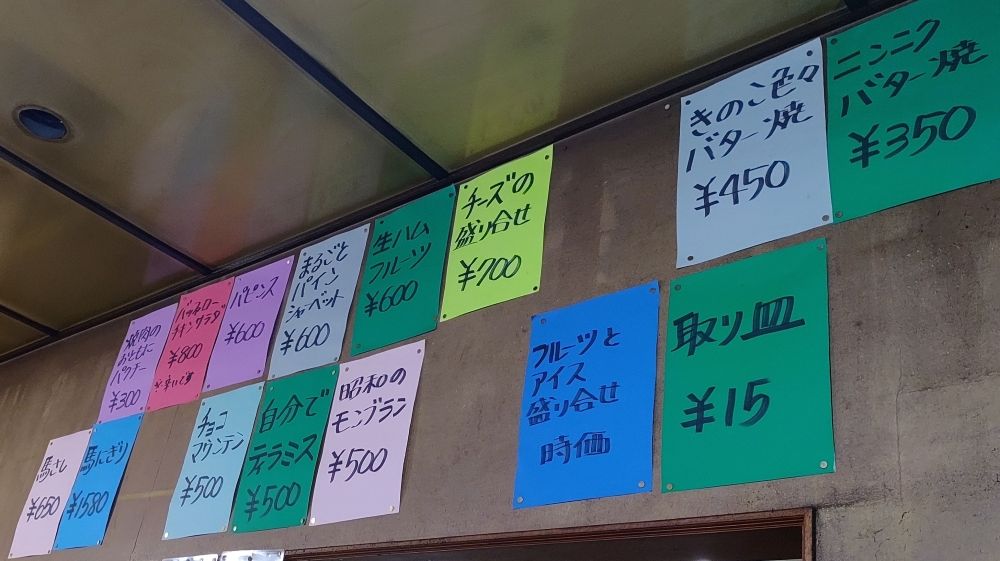 馬さし
¥650
馬にぎり
¥1580
焼肉の
おともに
パクチー
¥300
¥800
パピンス
¥600
まるごと
パイン
シャーベット
¥600
生ハム
フルーツ
¥600
チーズの
盛り合せ
¥700
きのこ色々
バター焼
¥450
ニンニク
バター焼
¥350
チョコ
マウンテン
¥500
自分で
ティラミス
¥500
昭和の
モンブラン
¥500
フルーツと
アイス
盛り合せ
時価
取り皿
¥15